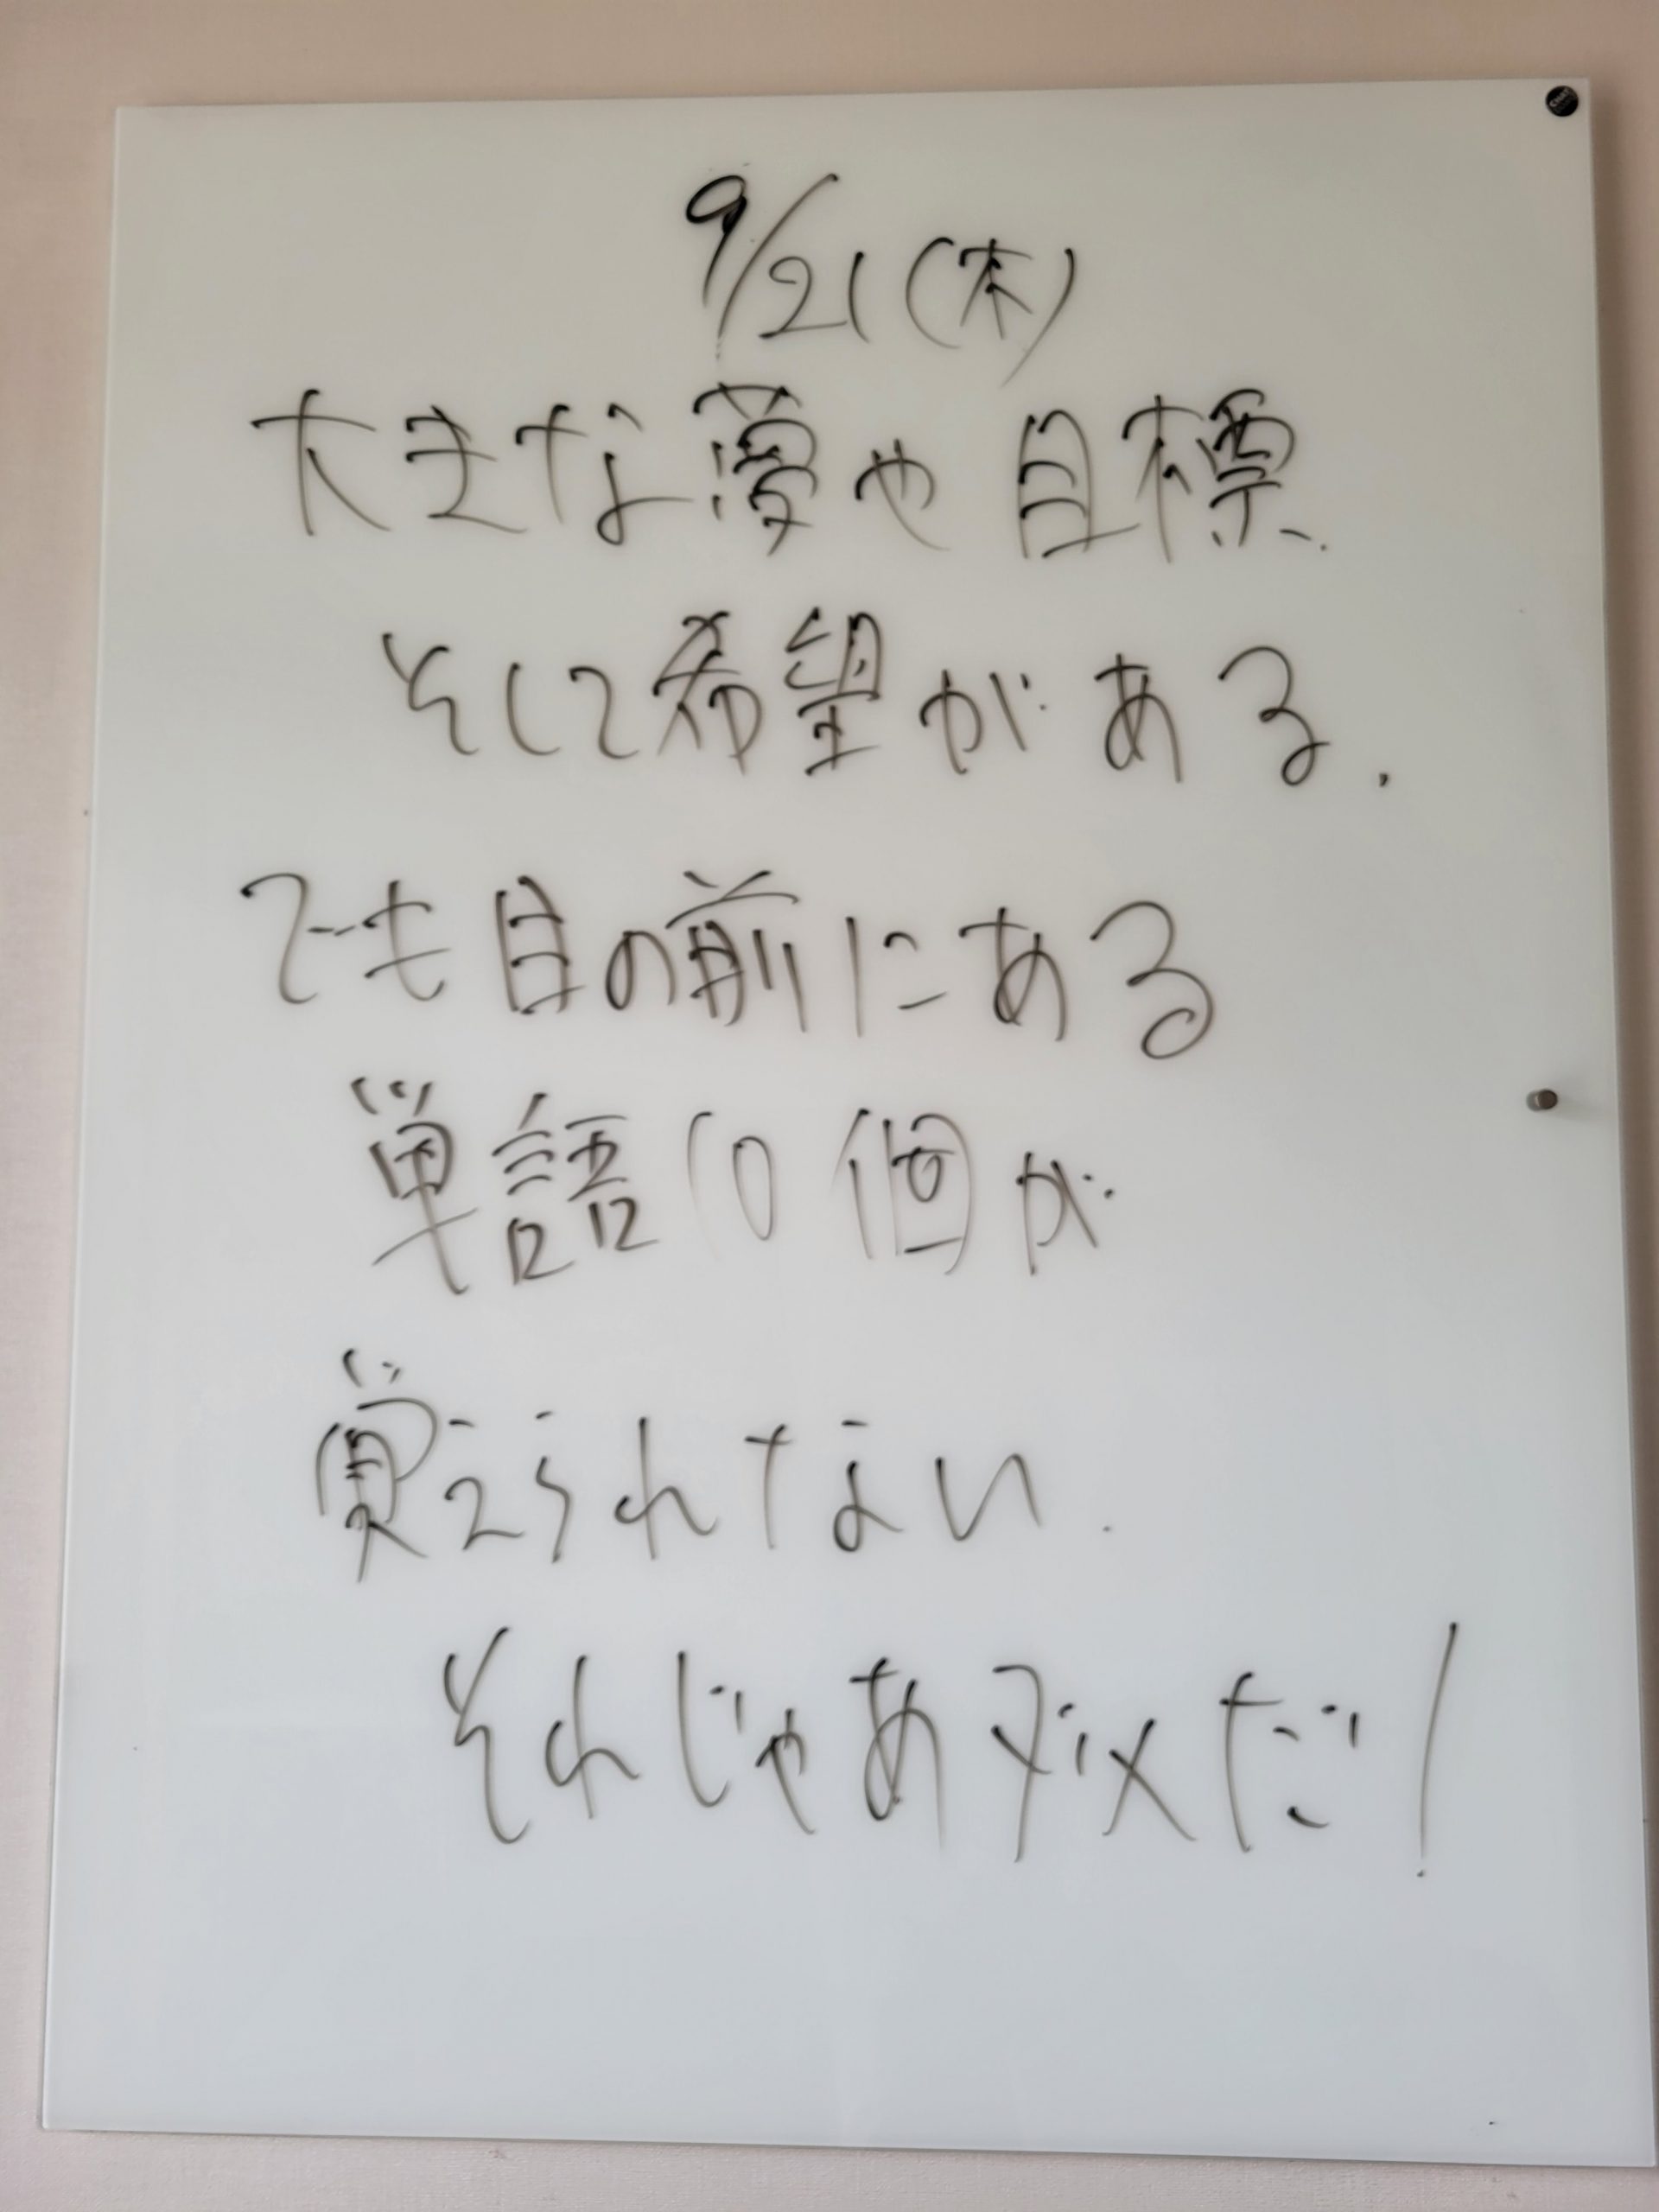 9/21(木)
大きな夢や目標、
そして希望がある.
でも目の前にある
単語10個が
覚えられない.
それじゃあダメだ!